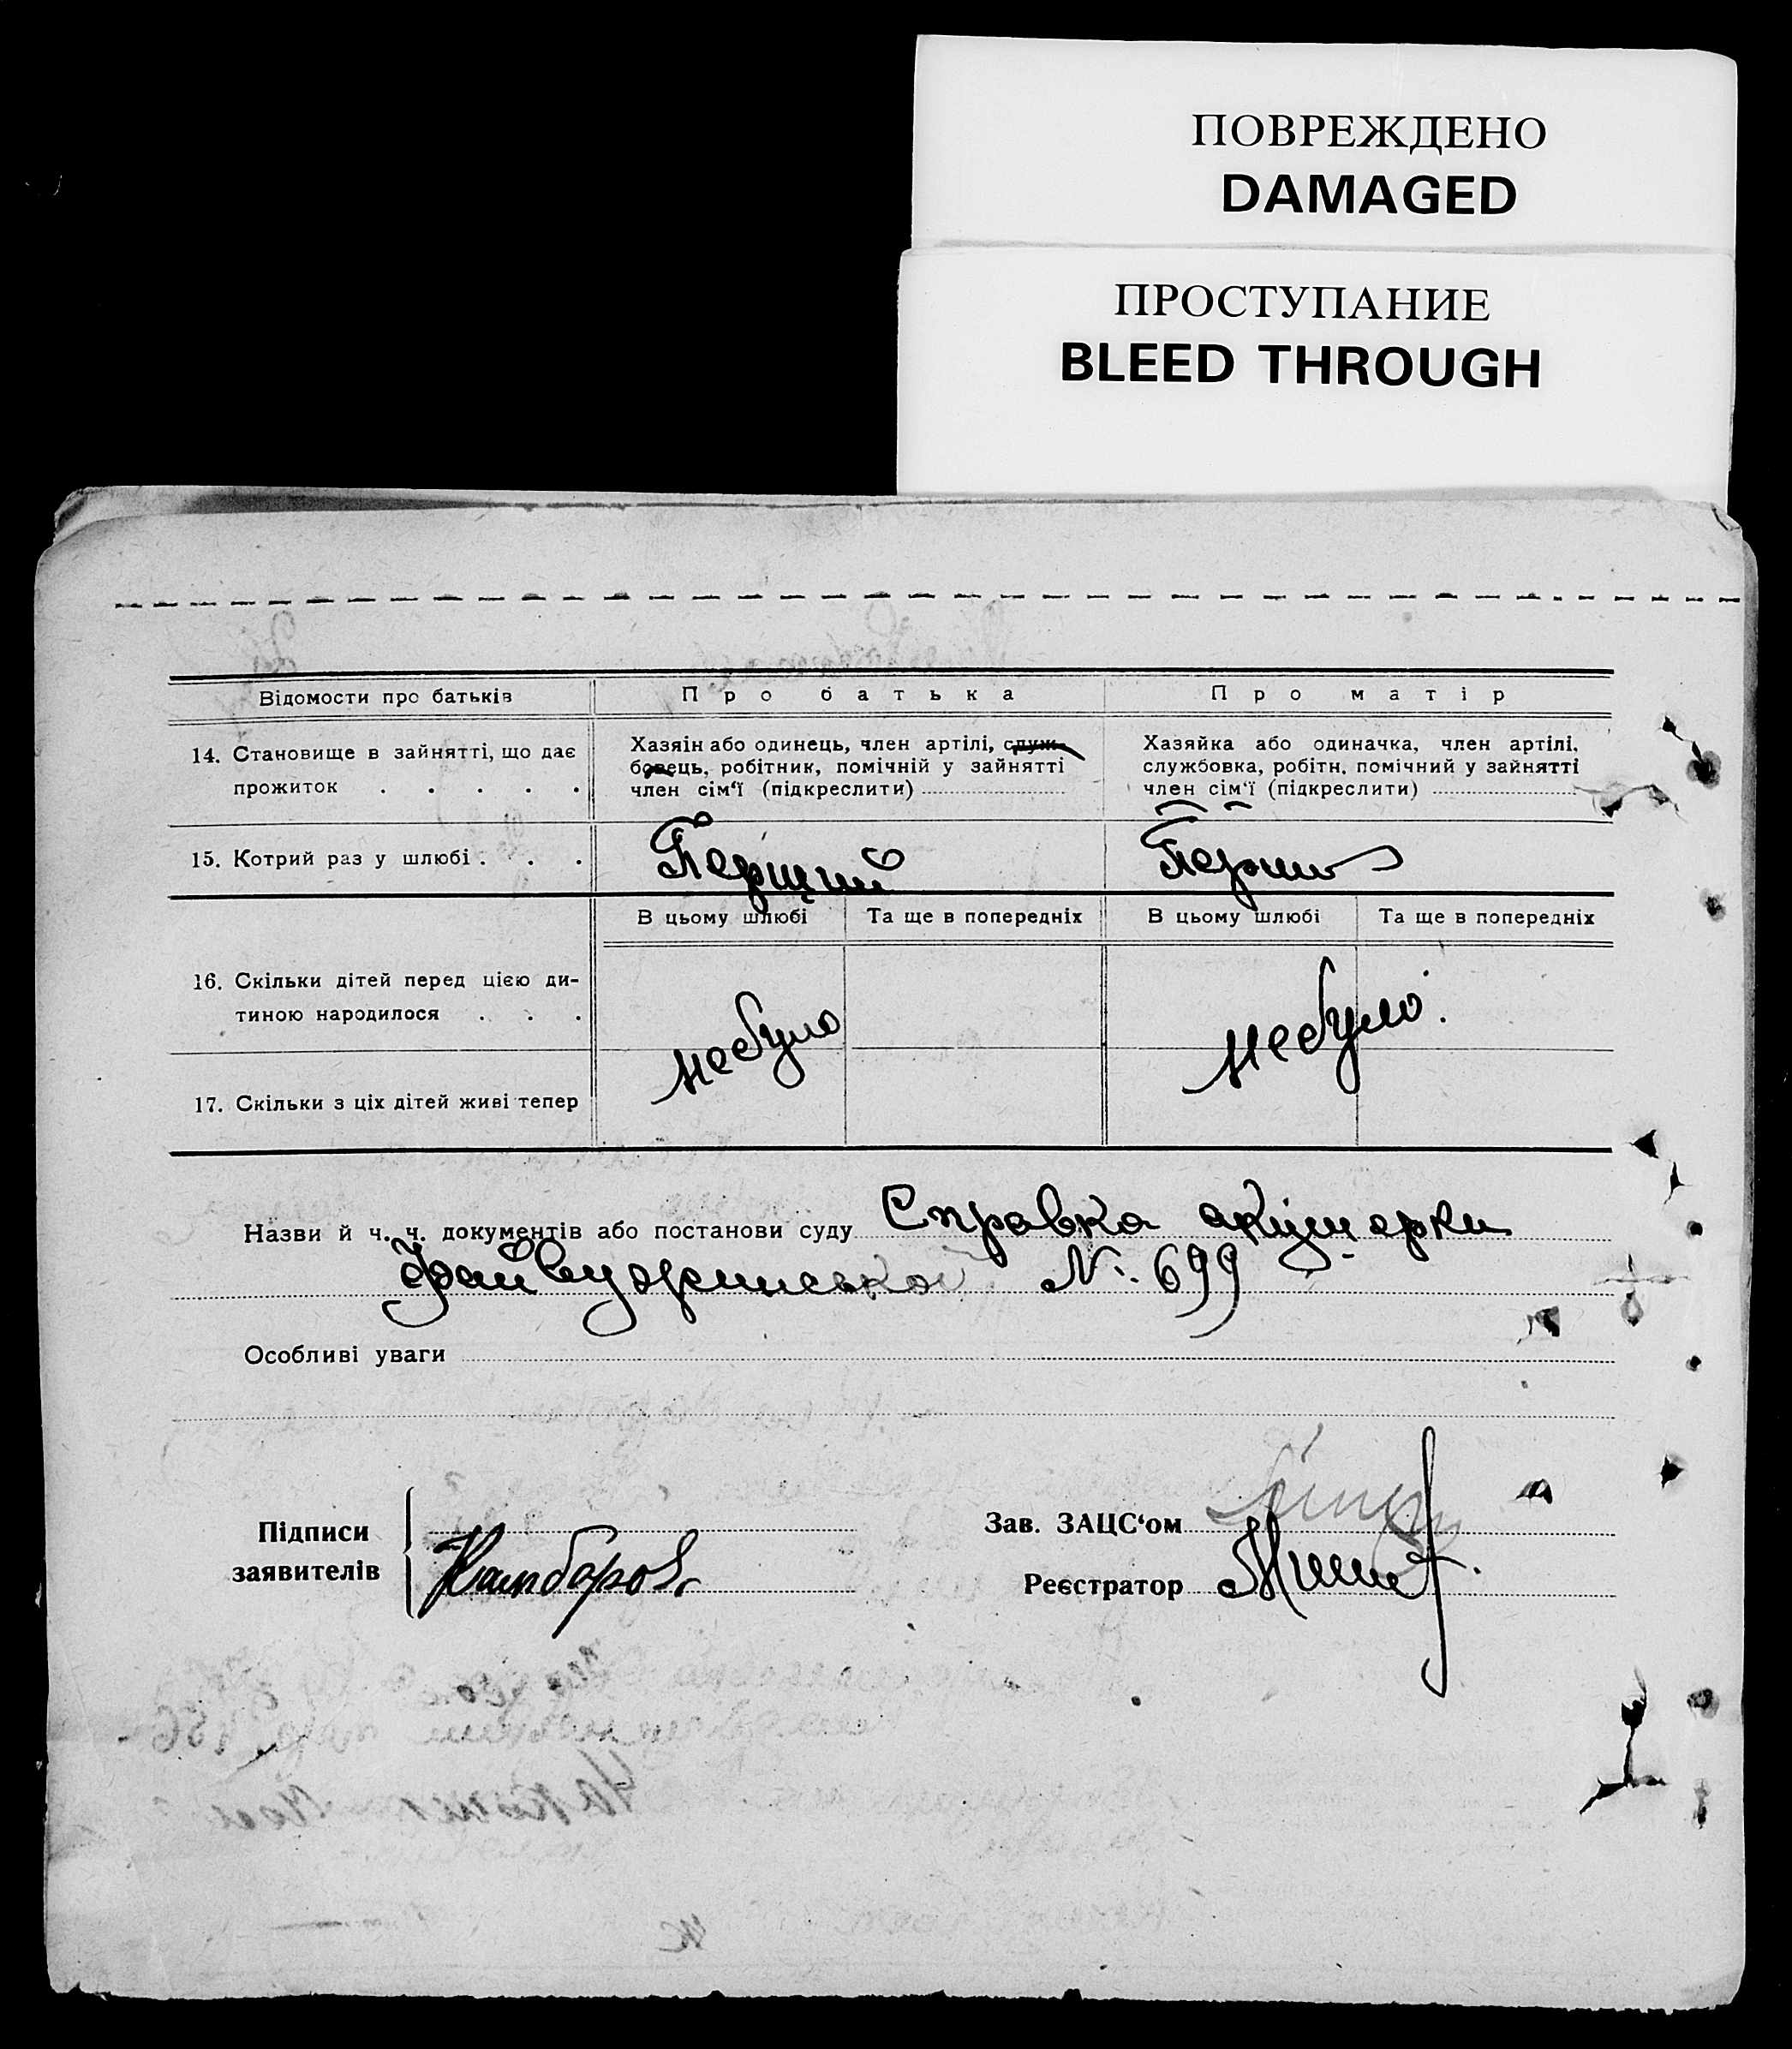 ПОВРЕЖДЕНО
DAMAGED
ПРОСТУПАНИЕ
BLEED THROUGH
Відомости про батьків
Про батька
Про матір
14. Становище в зайнятті, що дає
прожиток . . . . .
Хазяін або одинець, член артілі, служ-
бовець, робітник, помічній у зайнятті
член сім‘ї (підкреслити)
Хазяйка або одиначка, член артілі,
службовка, робітн. помічний у зайнятті
член сім‘ї (підкреслити)
15. Котрий раз у шлюбі . . .
Перший
В цьому шлюбі
Та ще в попередніх
В цьому шлюбі
Та ще в попередніх
16. Скільки дітей перед цією ди-
тиною народилося . . .
небуло
небуло.
17. Скільки з ціх дітей живі тепер
Назви й ч. ч. документів або постанови суду Справка акушорки
№. 699
Особливі уваги
Підписи
заявителів
Зав. ЗАЦС‘ом
Реєстратор